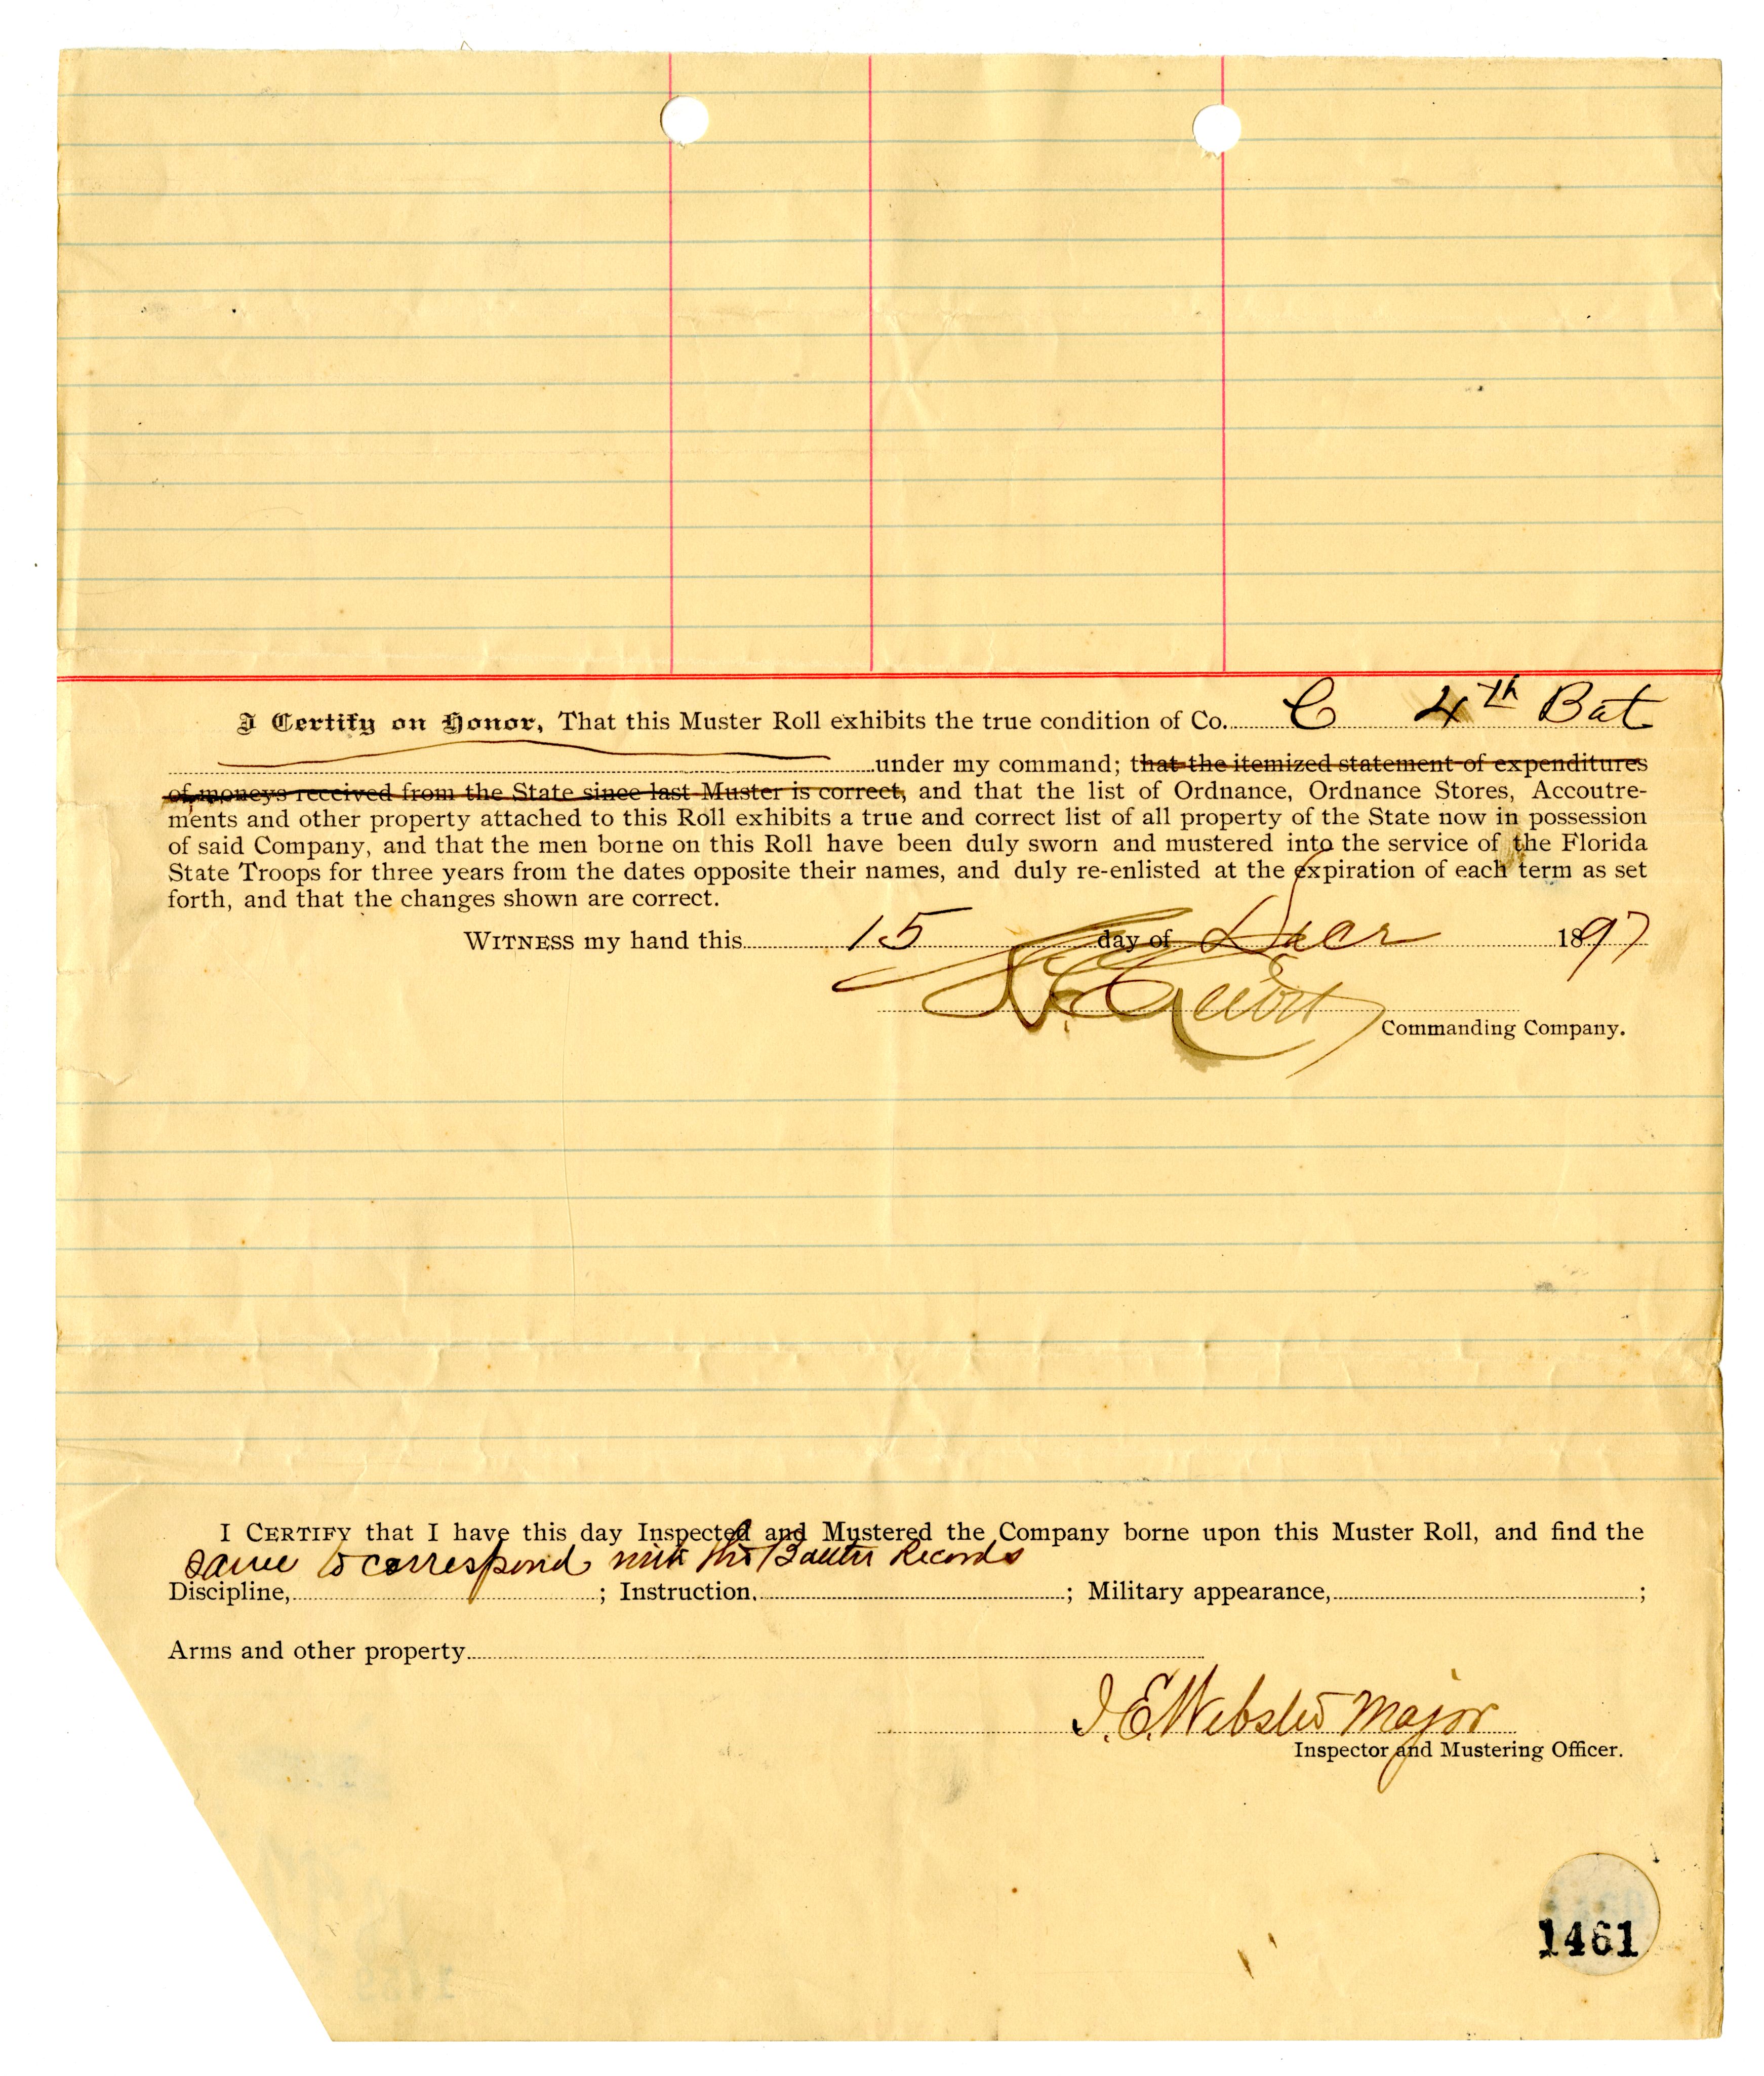 I Certify on Honor, That this Muster Roll exhibits the true condition of Co. C 4th Bat
under my command; that the itemized statement of expenditures
of moneys received from the State since last Muster is correct, and that the list of Ordnance, Ordnance Stores, Accoutre-
ments and other property attached to this Roll exhibits a true and correct list of all property of the State now in possession
of said Company, and that the men borne on this Roll have been duly sworn and mustered into the service of the Florida
State Troops for three years from the dates opposite their names, and duly re-enlisted at the expiration of each term as set
forth, and that the changes shown are correct.
WITNESS my hand this 15 day of 1897
Commanding Company.
I CERTIFY that I have this day Inspected and Mustered the Company borne upon this Muster Roll, and find the
same to correspond with the Records
Discipline, ; Instruction. ; Military appearance, ;
Arms and other property
J. E. Webster Major
Inspector and Mustering Officer.
1461